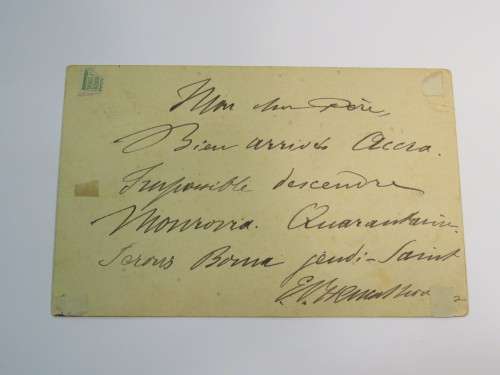 Mon cher Père,
Bien arrivés Accra.
Impossible descendre
Monrovia. Quarantaine.
Serons Boma jeudi-Saint